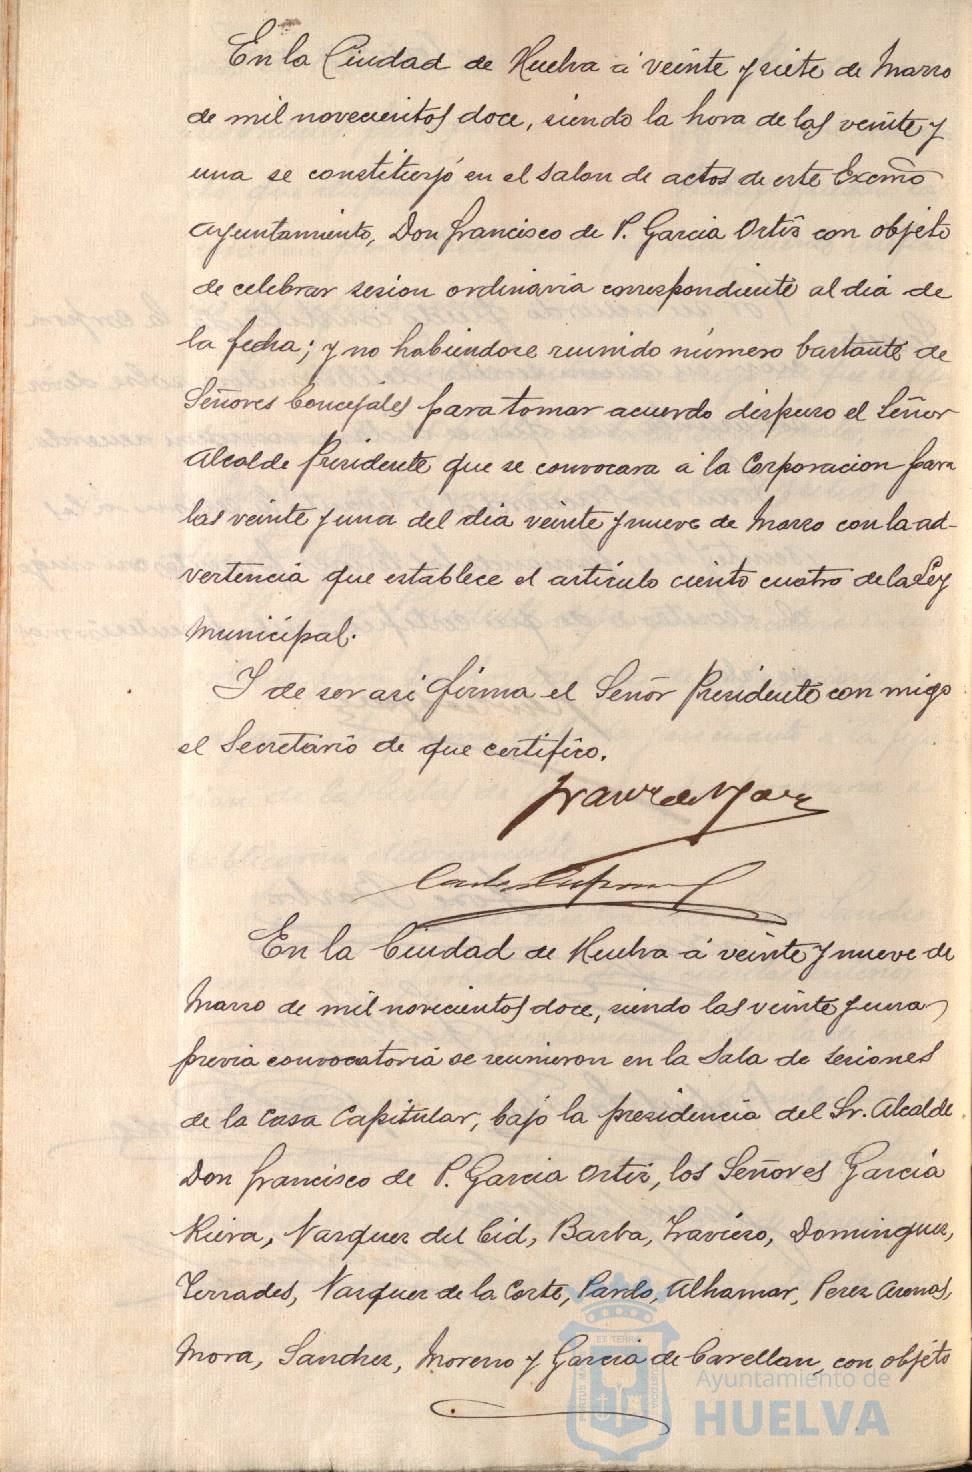 En la Ciudad de Huelva á veinte y siete de Marzo
de mil novecientos doce, siendo la hora de las veinte y
una se constituyó en el salon de actos de este Excmo
Ayuntamiento, Don Francisco de P. Garcia Ortiz con objeto
de celebrar sesion ordinaria correspondiente al dia de
la fecha; y no habiendose reunido número bastante de
Señores Concejales para tomar acuerdo dispuso el Señor
Alcalde Presidente que se convocara á la Corporacion para
las veinte y una del dia veinte y nueve de Marzo con la ad-
vertencia que establece el articulo ciento cuatro de la Ley
Municipal.
Y de ser asi firma el Señor Presidente con migo
el Secretario de que certifico.
En la Ciudad de Huelva á veinte y nueve de
Marzo de mil novecientos doce, siendo las veinte y una
previa convocatoria se reunieron en la Sala de Sesiones
de la Casa Capitular, bajo la presidencia del Sr. Alcalde
Don Francisco de P. Garcia Ortiz, los Señores García
Vazquez del Cid, Barba, Dominguez,
Terrades, Vazquez de la Corte, Pardo, Alhamar, Perez
Mora, Sanchez, Moreno y García de Cavellan, con objeto
Ayuntamiento de
HUELVA